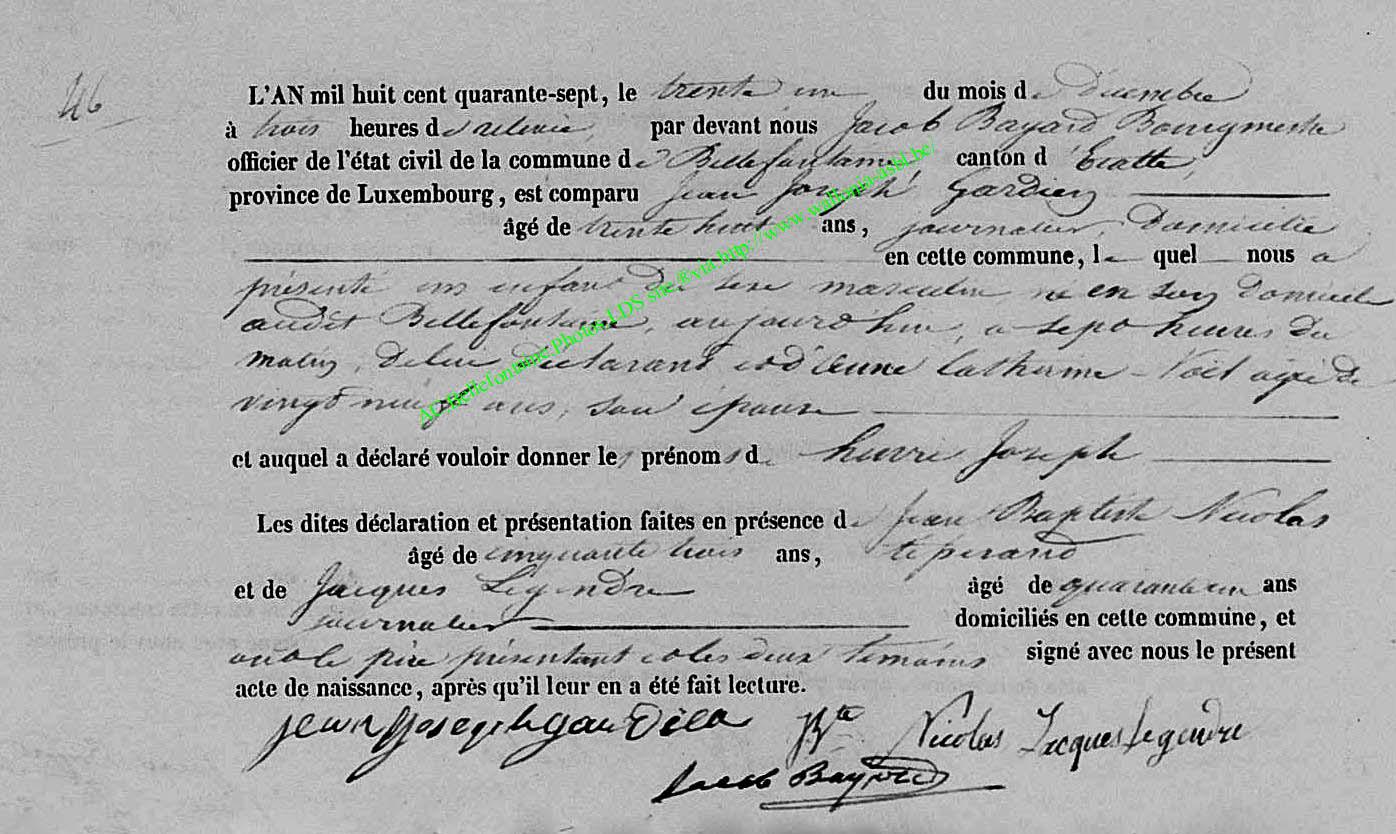 46
L'AN mil huit cent quarante-sept, le trente un du mois de décembre
à trois heures de relevée, par devant nous Jacob Bayard, Bourgmestre
officier de l'état civil de la commune de Bellefontaine canton d'Etalle,
province de Luxembourg, est comparu Jean Joseph Gardien
âgé de trente huit ans, journalier, domicilié
en cette commune, le quel nous a
présenté un enfant du sexe masculin né en son domicile
audit Bellefontaine, aujourd'hui, a sept heures du
matin, de lui déclarant et d'Anne Catherine agée de
vingt neuf ans, son épouse
et auquel a déclaré vouloir donner les prénoms de henri Joseph
Les dites déclaration et présentation faites en présence de Jean Baptiste Nicolas
âgé de cinquante trois ans, tisserand
et de Jacques Legendre âgé de quarante un ans
journalier domiciliés en cette commune, et
ont le père présentant et les deux témoins signé avec nous le présent
acte de naissance, après qu'il leur en a été fait lecture.
jean Joseph gardien Bte Nicolas Jacques legendre
Jacob Bayard
AC Bellefontaine.Photos LDS site ®via.http://www.wallonia-asbl.be/